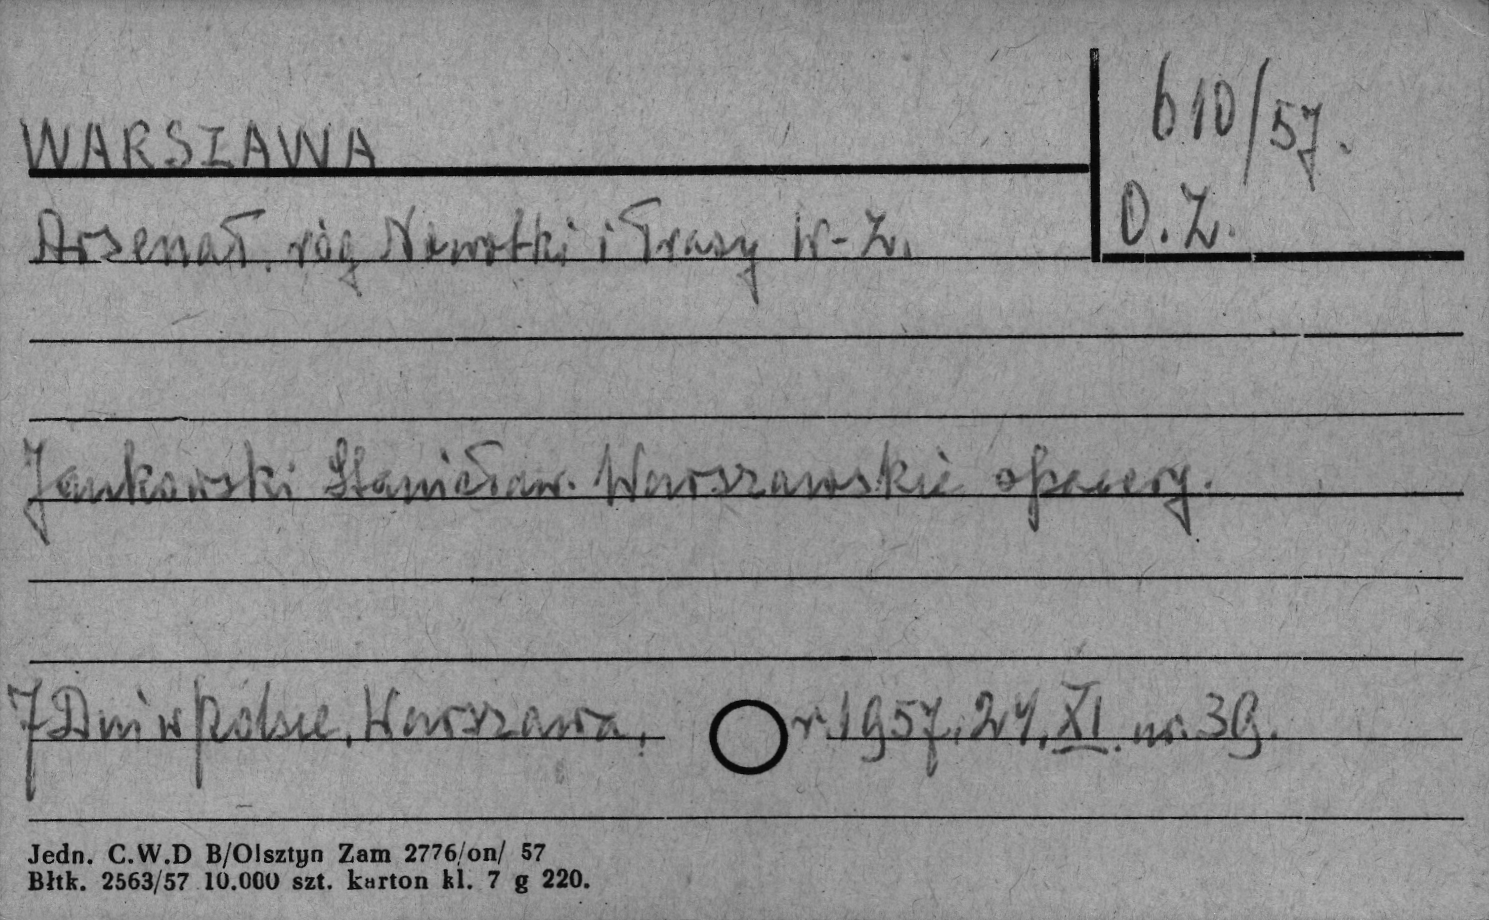 WARSZAWA
610/57.
O.Z.
Arsenał. róg Nowotki i Trasy W-Z.
Jankowski Stanisław. Warszawskie spacery.
7 Dni w Polsce, Warszawa, r. 1957, 24, XI. nr. 39.
Jedn. C.W.D B/Olsztyn Zam 2776/on/ 57
Błtk. 2563/57 10.000 szt. karton kl. 7 g 220.